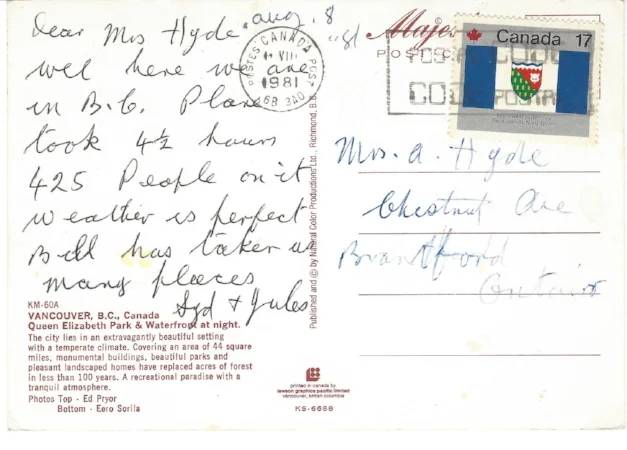 aug. 8
'81
Dear Mrs Hyde
well here we are
in B.C. Plane
took 4½ hours
425 People on it
weather is perfect
Bill has taken us
many places
Syd + Jules
KM-60A
VANCOUVER, B.C., Canada
Queen Elizabeth Park & Waterfront at night.
The city lies in an extravagantly beautiful setting
with a temperate climate. Covering an area of 44 square
miles, monumental buildings, beautiful parks and
pleasant landscaped homes have replaced acres of forest
in less than 100 years. A recreational paradise with a
tranquil atmosphere.
Photos Top - Ed Pryor
Bottom - Eero Sorila
Published and © by Natural Color Productions Ltd., Richmond, B.C.
POSTES CANADA POST
VII
1981
V6B 3A0
Majes
POSTC
Canada 17
CODE
POSTAL
Mrs. A. Hyde
Chestnut Ave
Brantford
Ontario
printed in canada by
lawson graphics pacific limited
vancouver, british columbia
KS-6688